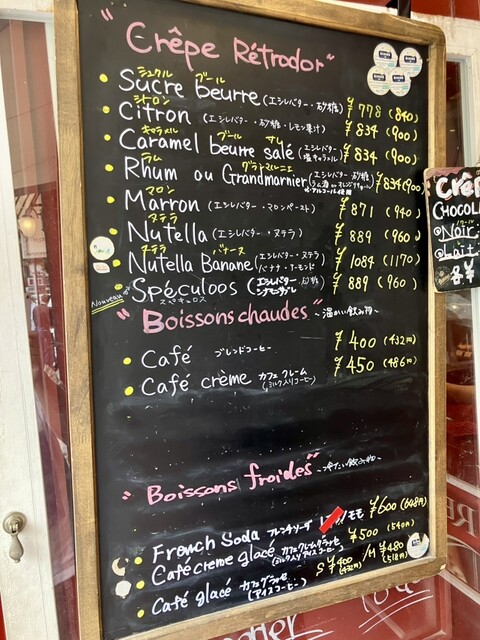 "Crêpe Rétrodor"
シュクル ブール
Sucre beurre (エシレバター・砂糖) ¥778 (840)
シトロン
Citron (エシレバター・砂糖・レモン果汁) ¥834 (900)
キャラメル ブール サレ
Caramel beurre salé (エシレバター・塩キャラメル) ¥834 (900)
ラム グランマルニエ
Rhum ou Grandmarnier (エシレバター・砂糖 ¥834 (900)
マロン
Marron (エシレバター・マロンペースト) ¥871 (940)
ヌテラ
Nutella (エシレバター・ヌテラ) ¥889 (960)
ヌテラ バナーヌ
Nutella Banane (エシレバター・ヌテラ バナナ・アーモンド) ¥1084 (1170)
Nouveau
Spéculoos (エシレバター ¥889 (960)
スペキュロス
"Boissons chaudes" ～温かい飲み物～
Café ブレンドコーヒー ¥400 (432円)
Café crème カフェクレーム (ミルク入りコーヒー) ¥450 (486円)
"Boissons froides" ～冷たい飲み物～
French Soda フレンチソーダ モモ ¥600 (648円)
Café crème glacé カフェクレームグラッセ (ミルク入りアイスコーヒー) ¥500 (540円)
Café glacé カフェグラッセ (アイスコーヒー) S ¥400 (432円) /M ¥480 (518円)
Crê
CHOCOL
Noir
Lait